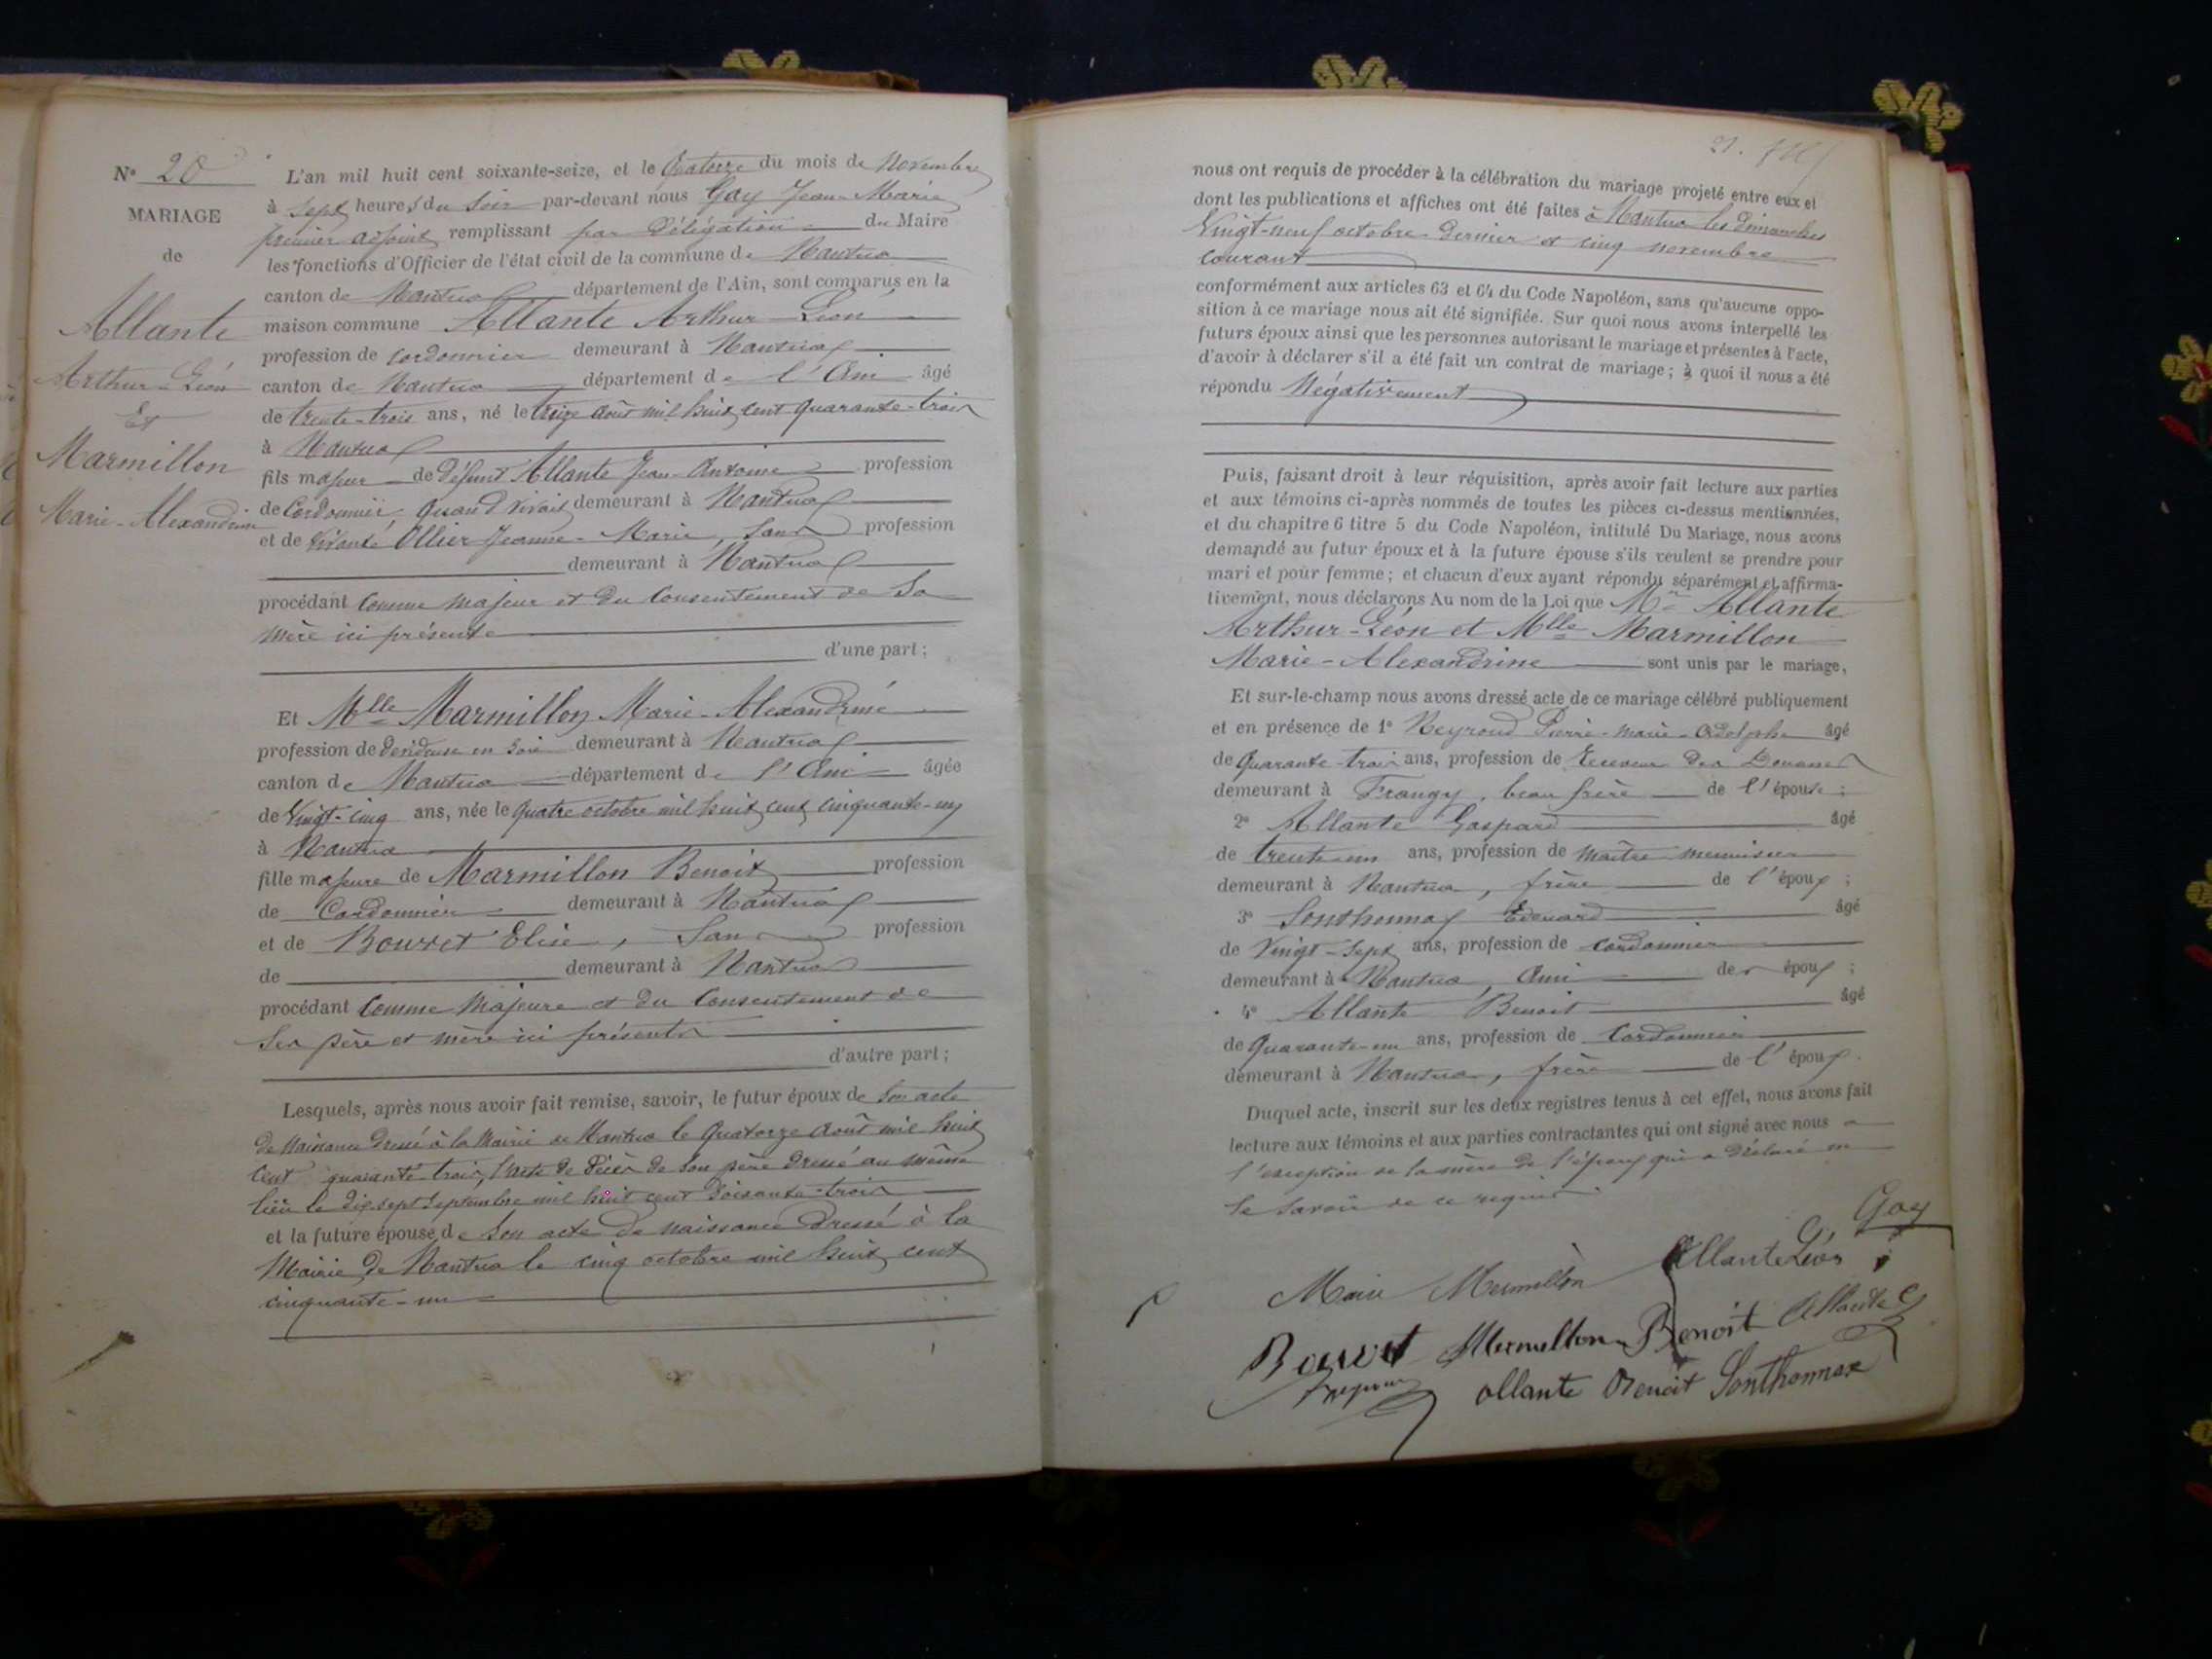 Nº 20
MARIAGE
de
Allante
Arthur-Léon
Et
Marmillon
Marie-Alexandrine
L'an mil huit cent soixante-seize, et le Quatorze du mois de Novembre
à Sept heures du Soir par-devant nous Gay Jean-Marie
premier adjoint remplissant par Délégation du Maire
les fonctions d'Officier de l'état civil de la commune de Nantua
canton de Nantua département de l'Ain, sont comparus en la
maison commune Allante Arthur Léon
profession de Cordonnier demeurant à Nantua
canton de Nantua département de l'Ain âgé
de trente-trois ans, né le treize août mil huit cent quarante-trois
à Nantua
fils majeur de défunt Allante Jean-Antoine profession
de Cordonnier, quand vivait demeurant à Nantua
et de vivante Ollier Jeanne-Marie, Sans profession
demeurant à Nantua
procédant Comme Majeur et du Consentement de Sa
mère ici présente
d'une part;
Et Mlle Marmillon Marie-Alexandrine
profession de dévideuse en soie demeurant à Nantua
canton de Nantua département de l'Ain âgée
de Vingt-cinq ans, née le quatre octobre mil huit cent cinquante-un
à Nantua
fille majeure de Marmillon Benoit profession
de Cordonnier demeurant à Nantua
et de Bouvet Elise, Sans profession
de demeurant à Nantua
procédant Comme Majeure et du Consentement de
Ses père et mère ici présents
d'autre part;
Lesquels, après nous avoir fait remise, savoir, le futur époux de Son acte
de Naissance dressé à la Mairie de Nantua le quatorze août mil huit
Cent quarante trois, l'acte de décès de Son père dressé au même
lieu le dix-sept Septembre mil huit cent Soixante-trois
et la future épouse de Son acte de naissance dressé à la
Mairie de Nantua le cinq octobre mil huit cent
cinquante-un
nous ont requis de procéder à la célébration du mariage projeté entre eux et
dont les publications et affiches ont été faites à Nantua les dimanches
Vingt-neuf octobre dernier et cinq novembre
courant
conformément aux articles 63 et 64 du Code Napoléon, sans qu'aucune oppo-
sition à ce mariage nous ait été signifiée. Sur quoi nous avons interpellé les
futurs époux ainsi que les personnes autorisant le mariage et présentes à l'acte,
d'avoir à déclarer s'il a été fait un contrat de mariage; à quoi il nous a été
répondu Négativement
Puis, faisant droit à leur réquisition, après avoir fait lecture aux parties
et aux témoins ci-après nommés de toutes les pièces ci-dessus mentionnées,
et du chapitre 6 titre 5 du Code Napoléon, intitulé Du Mariage, nous avons
demandé au futur époux et à la future épouse s'ils veulent se prendre pour
mari et pour femme; et chacun d'eux ayant répondu séparément et affirma-
tivement, nous déclarons Au nom de la Loi que Mr Allante
Arthur-Léon et Mlle Marmillon
Marie-Alexandrine sont unis par le mariage,
Et sur-le-champ nous avons dressé acte de ce mariage célébré publiquement
et en présence de 1º Neyroud Pierre-Marie-Adolphe âgé
de Quarante-trois ans, profession de Receveur des Douanes
demeurant à Frangy, beau frère de l'épouse;
2º Allante Gaspard âgé
de trente-un ans, profession de Maître menuisier
demeurant à Nantua, frère de l'époux;
3º Sonthonnax Edouard âgé
de Vingt-Sept ans, profession de Cordonnier
demeurant à Nantua, Ami des époux;
4º Allante Benoit âgé
de Quarante-un ans, profession de Cordonnier
demeurant à Nantua, frère de l'époux.
Duquel acte, inscrit sur les deux registres tenus à cet effet, nous avons fait
lecture aux témoins et aux parties contractantes qui ont signé avec nous à
l'exception de la mère de l'époux qui a déclaré ne
le Savoir de ce requise
Gay
Marie Mermillon Allante Léon
Bouvet Mermillon Benoit Allante G
Allante Benoit Sonthonnax